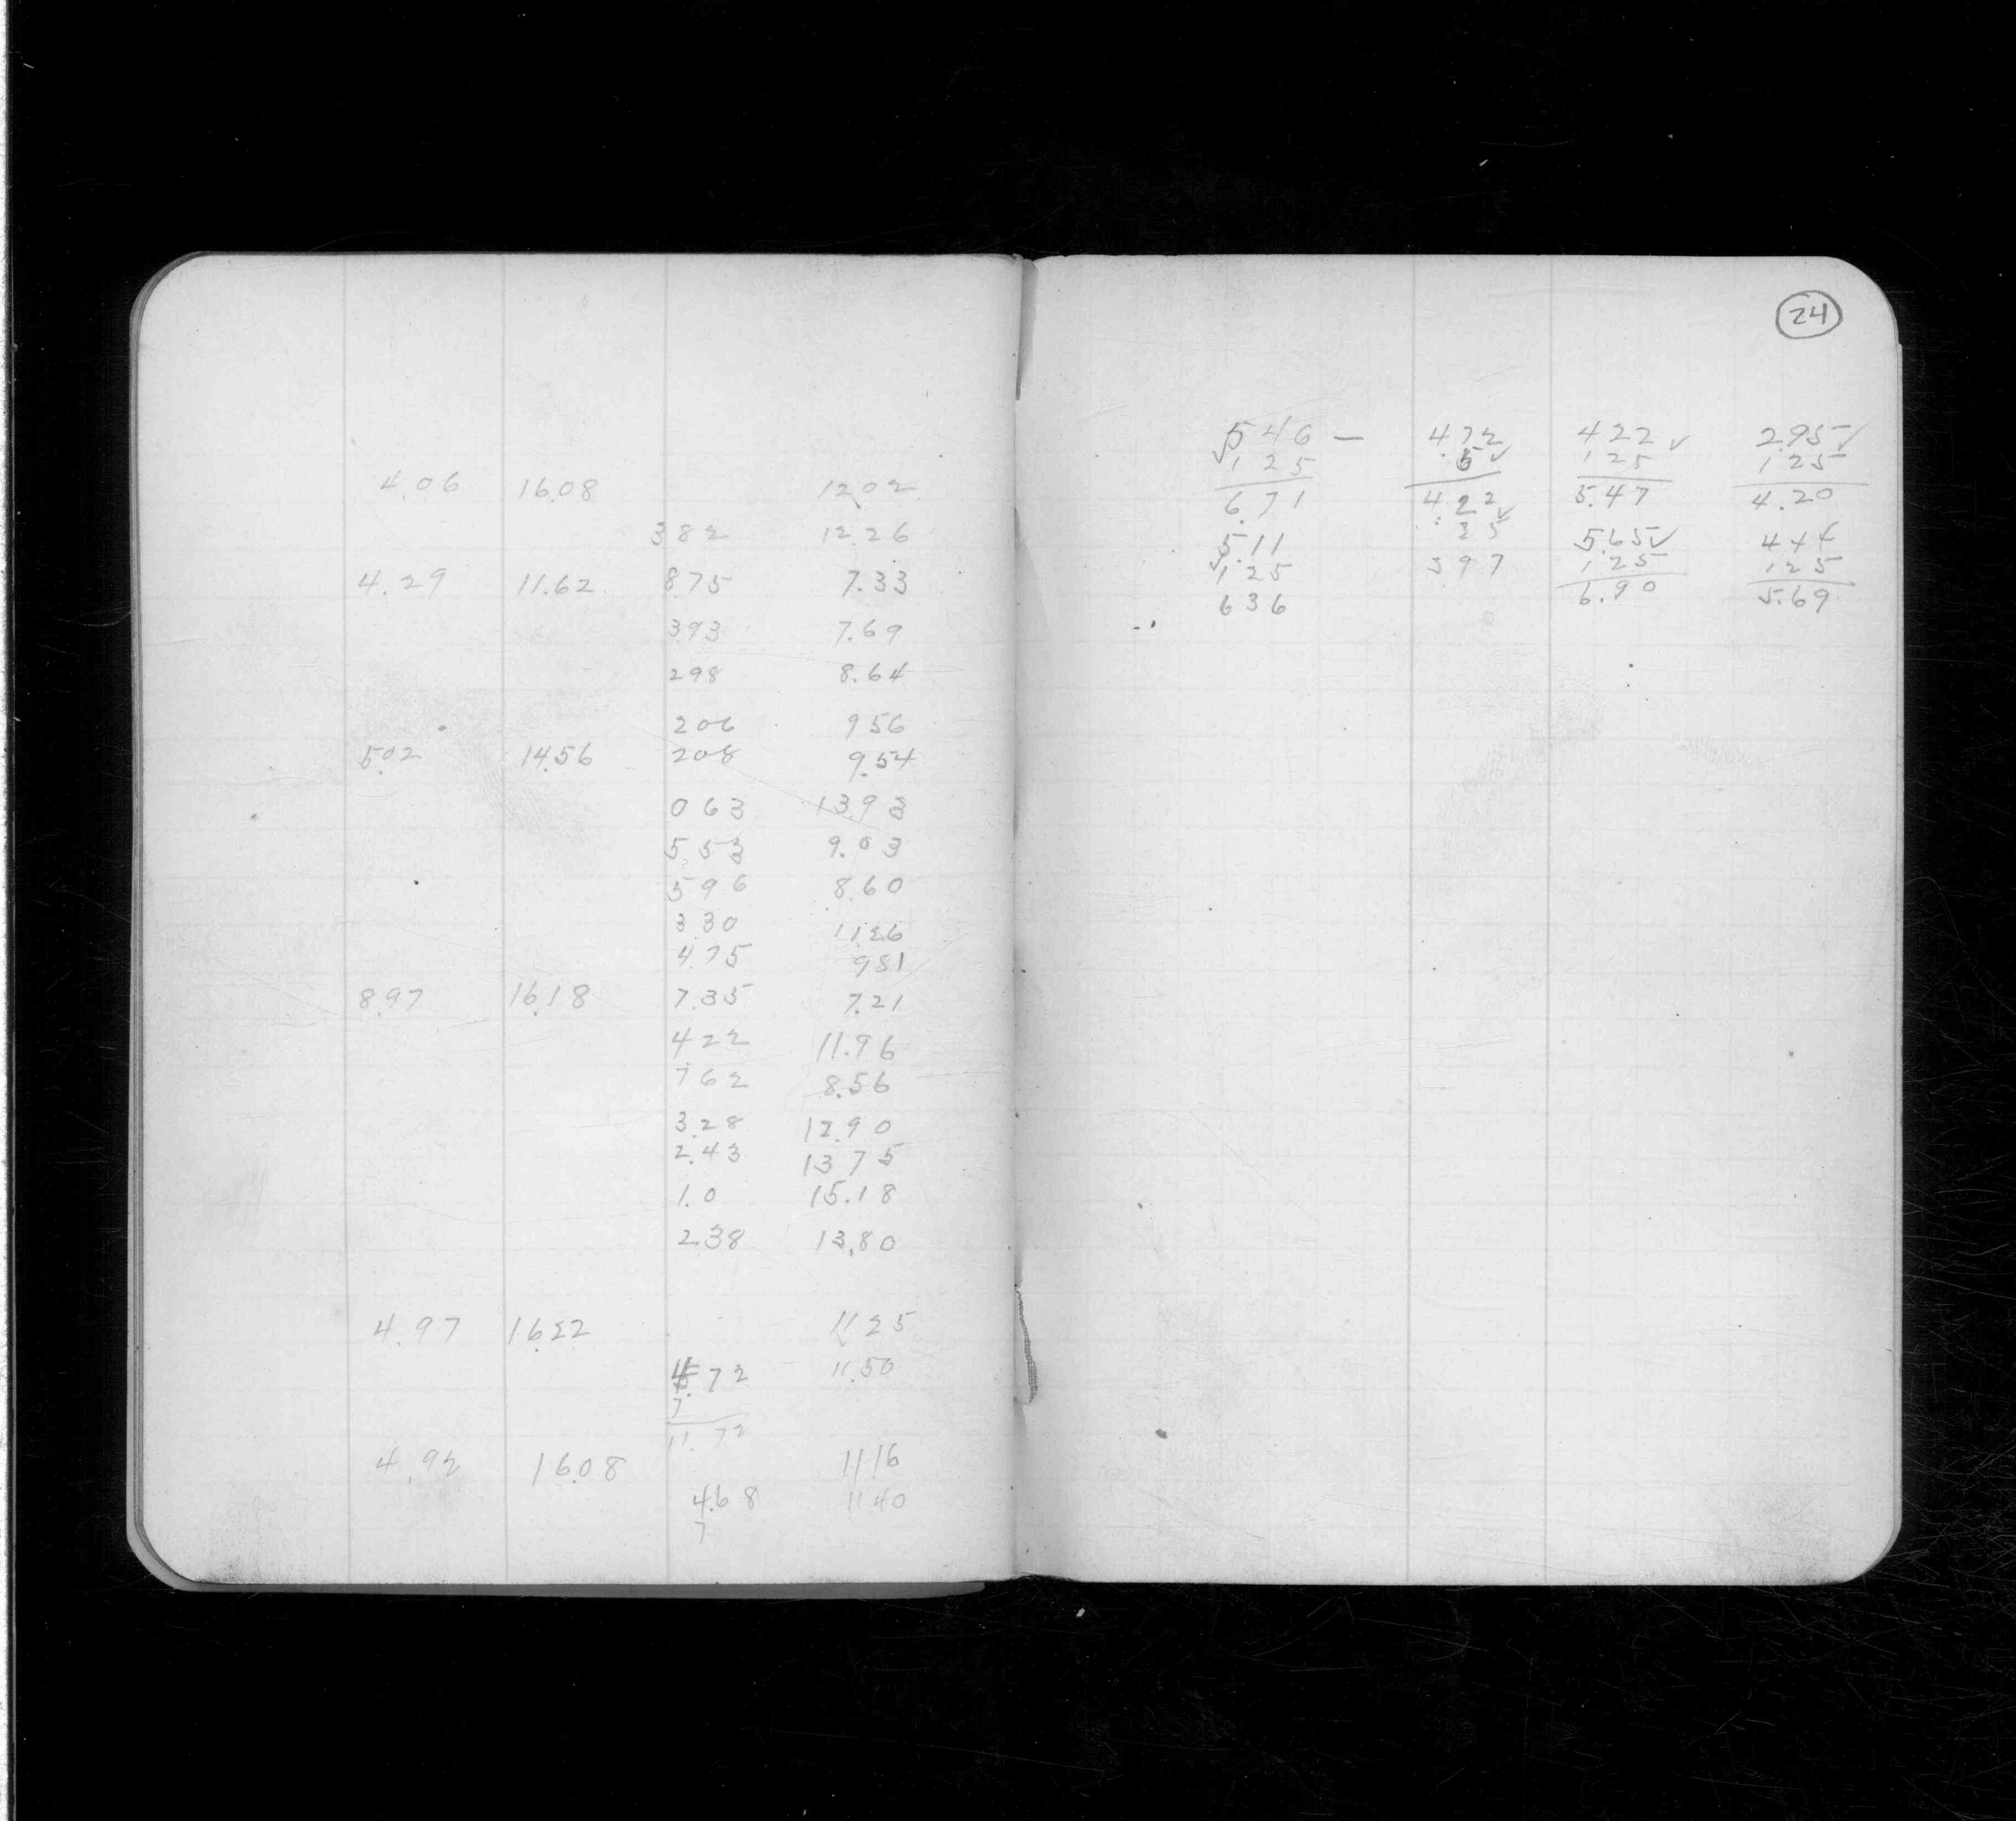 4.06 16.08 12.02
382 12.26
4.29 11.62 8.75 7.33
3.93 7.69
298 8.64
206 956
5.02 14.56 208 9.54
063 13.93
5.53 9.03
596 8.60
3.30 11.26
4.75 981
8.97 16.18 7.35 7.21
422 11.96
762 8.56
3.28 12.90
2.43 13 75
1.0 15.18
2.38 13.80
4.97 16.22 11 25
4.72 11.50
7
11.72
4.92 16.08 11 16
4.68 11 40
7
24
546 — 472 422 ✓ 2.95 ✓
125 .5 ✓ 125 125
6.71 422 5.47 4.20
5.11 5.65 ✓ 444
125 125 125
636 597 6.90 5.69